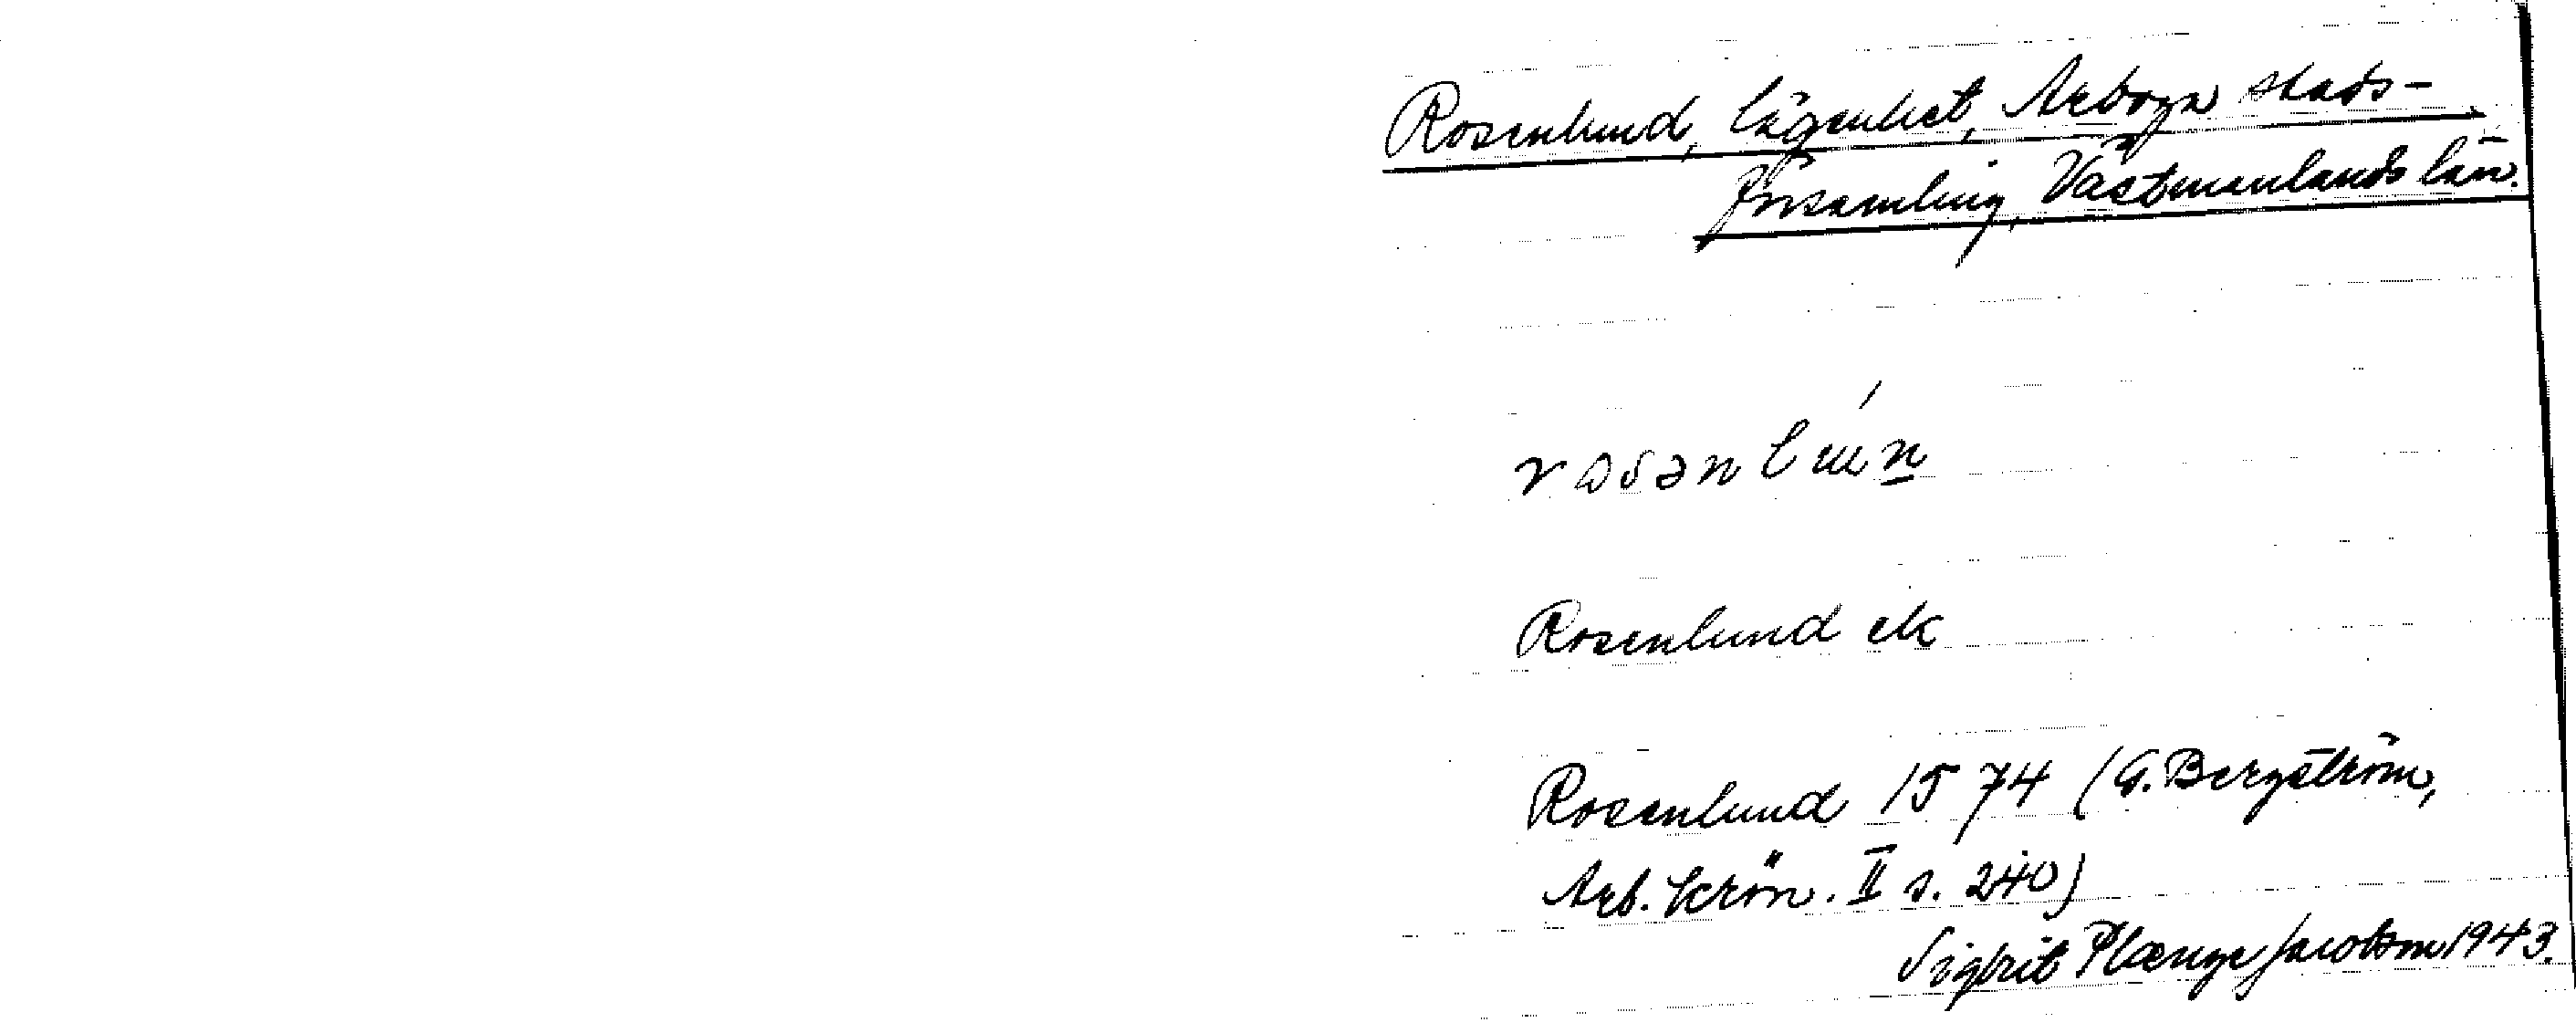 Rosenlund, lägenhet, Arboga stads-
församling, Västmanlands län.
rosənlun
Rosenlund ek
Rosenlund 1574 (G. Bergström,
Arb. krön. II s. 240)
Sigbrit Plænge Jacobson 1943.